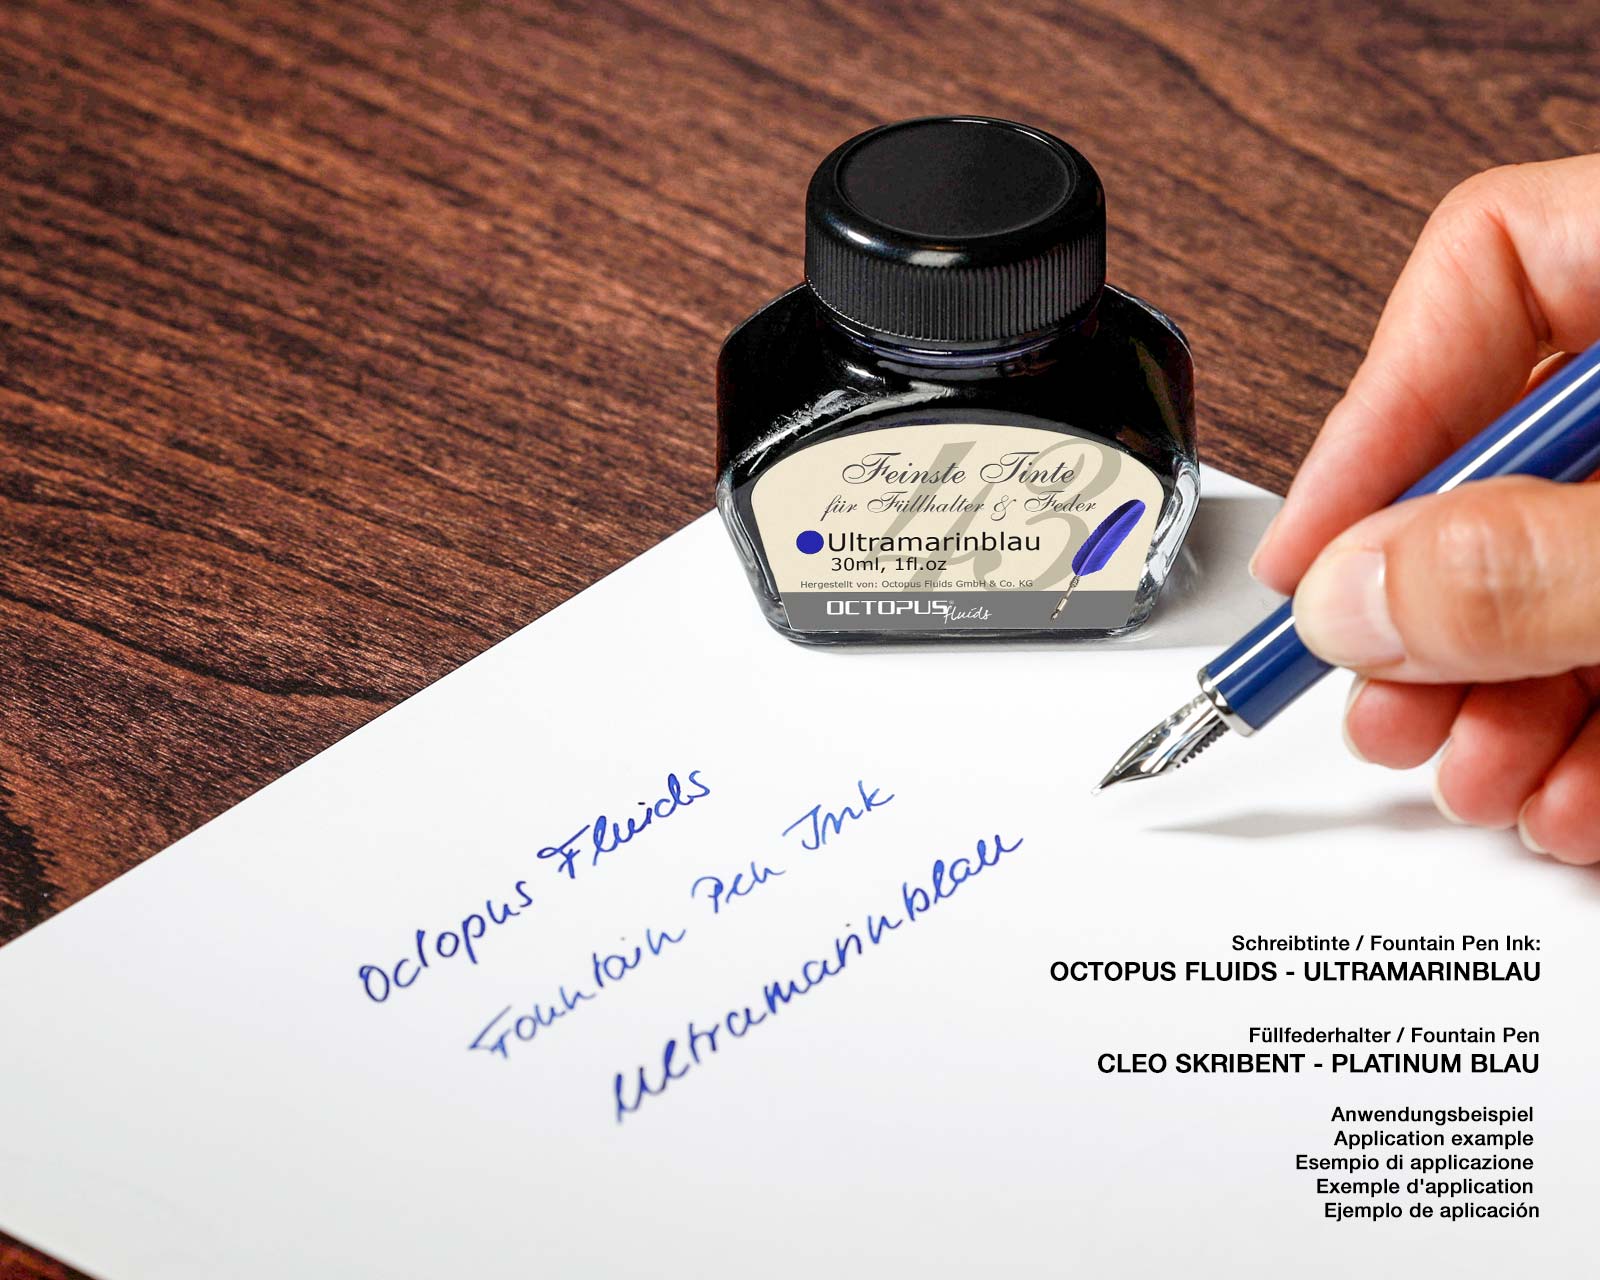 43
Feinste Tinte
für Füllhalter & Feder
Ultramarinblau
30ml, 1fl.oz
Hergestellt von: Octopus Fluids GmbH & Co. KG
OCTOPUS® fluids
Octopus Fluids
Fountain Pen Ink
Ultramarinblau
Schreibtinte / Fountain Pen Ink:
OCTOPUS FLUIDS - ULTRAMARINBLAU
Füllfederhalter / Fountain Pen
CLEO SKRIBENT - PLATINUM BLAU
Anwendungsbeispiel
Application example
Esempio di applicazione
Exemple d'application
Ejemplo de aplicación